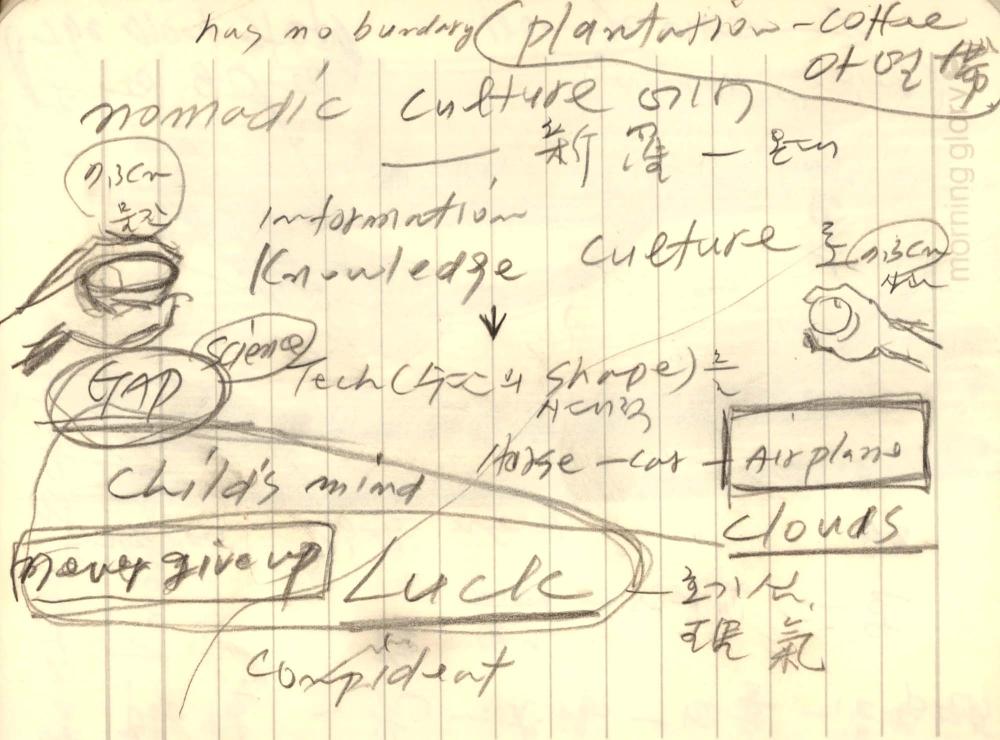 has no bundary (plantation-coffee
아열帶
nomadic culture 여기
新羅 - 온대
0.3cm
information
Knowledge
culture 를
0.3cm
↓
GAP
science
Tech( shape)는
시대적
Horse - car - Airplane
child's mind
clouds
never give up
Luck
- 호기심,
理 氣
compident
morning glory